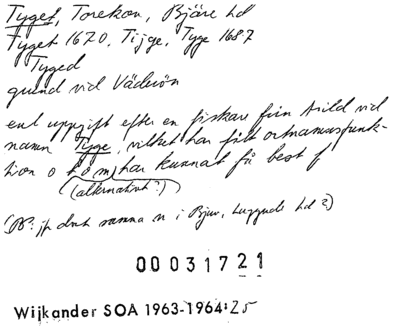 Tyget, Torekov, Bjäre hd
Tyget 1670, Tijge, Tyge 1687
Tyged
grund vid Väderön
enl uppgift efter en fiskare från Arild vid
namn Tyge, vilket har fått ortnamnsfunk-
tion o som har kunnat få best f
(alternativt?)
(jfr dock samma n i Bjuv, Luggude hd?)
00031721
Wijkander SOA 1963-1964:25